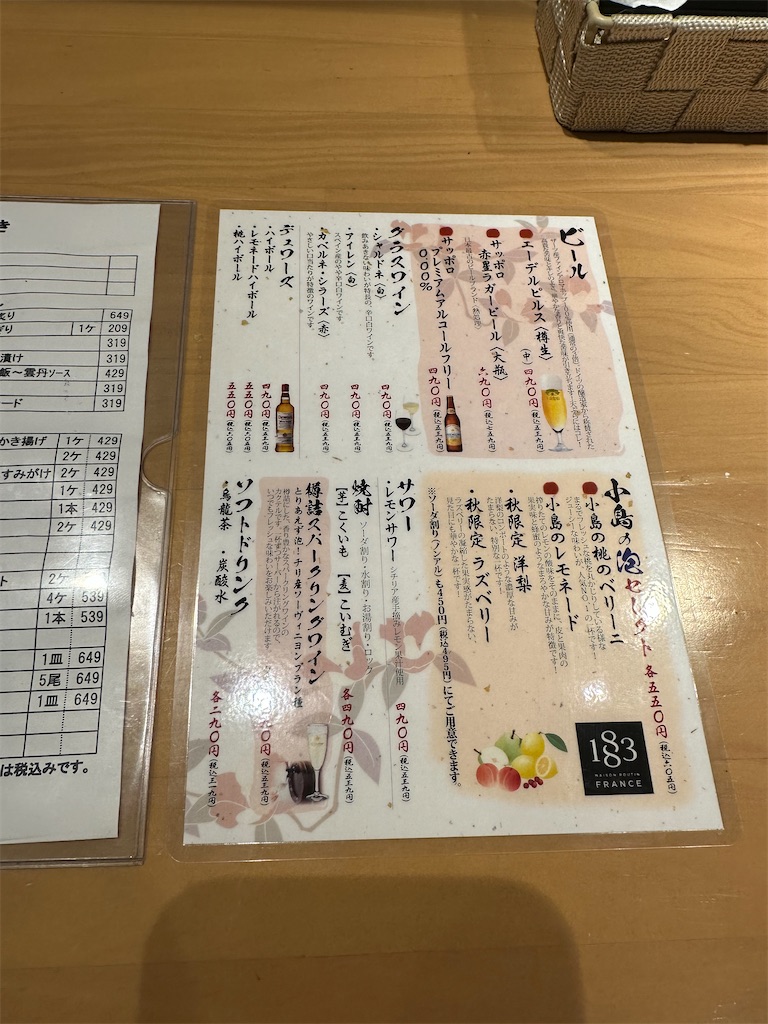 ビール
エーデルピルス〈樽生〉
(中) 四九〇円(税込五三九円)
サッポロ
赤星ラガービール〈大瓶〉
六九〇円(税込七五九円)
サッポロ
プレミアムアルコールフリー
0.00%
四九〇円(税込五三九円)
グラスワイン
・シャルドネ(白)
四九〇円(税込五三九円)
・アイレン(白)
スペイン産のやや辛口白ワインです。
四九〇円(税込五三九円)
・カベルネ・シラーズ〈赤〉
やさしい口当たりが特徴のワインです。
四九〇円(税込五三九円)
デュワーズ
・ハイボール
四九〇円(税込五三九円)
・レモネードハイボール
五五〇円(税込六〇五円)
・桃ハイボール
五五〇円(税込六〇五円)
小島の泡セレクト 各五五〇円(税込六〇五円)
小島の桃のベリーニ
小島のレモネード
・秋限定 洋梨
・秋限定 ラズベリー
※ソーダ割り(ノンアル)も450円(税込495円)にてご用意できます。
1883
MAISON ROUTIN
FRANCE
サワー
・レモンサワー シチリア産手摘みレモン果汁使用
四九〇円(税込五三九円)
焼酎 ソーダ割り・水割り・お湯割り・ロック
【芋】こくいも 【麦】こいむぎ
各四九〇円(税込五三九円)
樽詰スパークリングワイン
とりあえず泡!チリ産ソーヴィニヨンブラン種
いつでもフレッシュな味わいをお楽しみいただけます。
四九〇円(税込五三九円)
ソフトドリンク
・烏龍茶 ・炭酸水
各二九〇円(税込三一九円)
き
649
1ケ 209
319
漬け 319
飯~雲丹ソース 429
319
ード 319
かき揚げ 1ケ 429
2ケ 429
すみがけ 2ケ 429
1ケ 429
1本 429
2ケ 429
ト 2ケ
4ケ 539
1本 539
1皿 649
5尾 649
1皿 649
は税込みです。